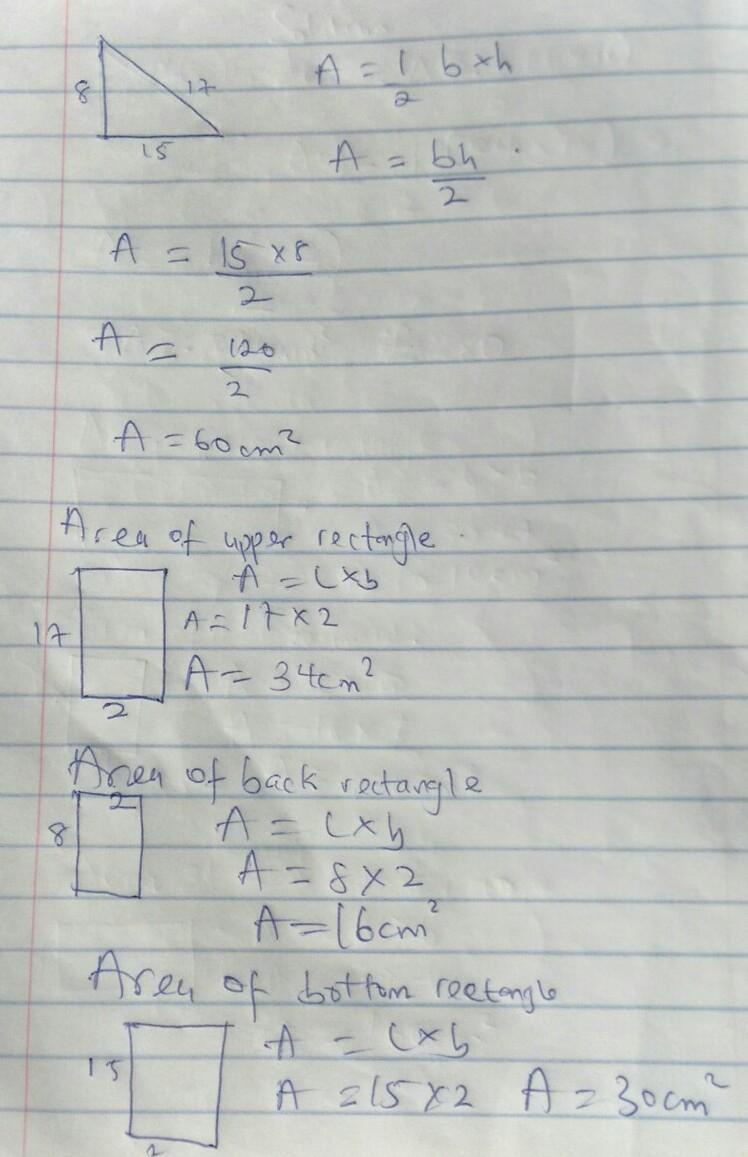 8 17 A = 1/2 b×h
15
A = bh/2
A = 15 × 8/2
A = 120/2
A = 60cm²
Area of upper rectangle
A = L×b
17 A = 17 × 2
A = 34cm²
2
Area of back rectangle
2
8 A = L×b
A = 8 × 2
A = 16cm²
Area of bottom rectangle
15 A = L×b
A = 15 × 2 A = 30cm²
2